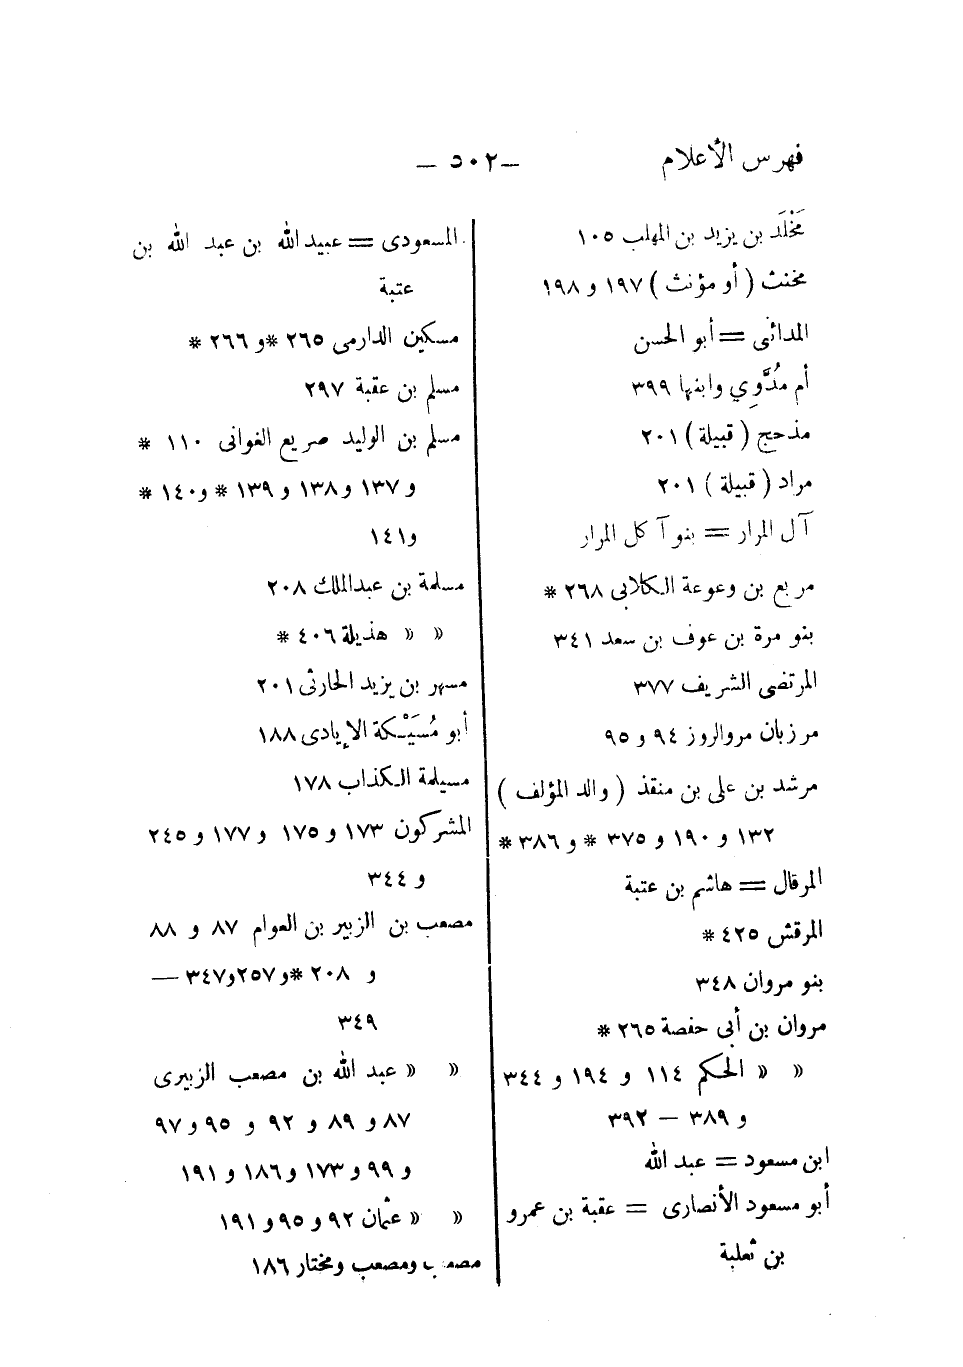 فهرس الأعلام — ٥٠٢ —
مَخْلَد بن يزيد بن المهلب ١٠٥
مخنث ( أو مؤنث ) ١٩٧ و ١٩٨
المدائنى = أبو الحسن
أم مُدَّوِي وابنها ٣٩٩
مذحج ( قبيلة ) ٢٠١
مراد ( قبيلة ) ٢٠١
آل المرار = بنو آكل المرار
مربع بن وعوعة الكلابى ٢٦٨ *
بنو مرة بن عوف بن سعد ٣٤١
المرتضى الشريف ٣٧٧
مرزبان مروالروز ٩٤ و ٩٥
مرشد بن على بن منقذ ( والد المؤلف )
١٣٢ و ١٩٠ و ٣٧٥ * و ٣٨٦ *
المرقال = هاشم بن عتبة
المرقش ٤٢٥ *
بنو مروان ٣٤٨
مروان بن أبى حفصة ٢٦٥ *
« « الحكم ١١٤ و ١٩٤ و ٣٤٤
و ٣٨٩ — ٣٩٢
ابن مسعود = عبد الله
أبو مسعود الأنصارى = عقبة بن عمرو
بن ثعلبة
المسعودى = عبيد الله بن عبد الله بن
عتبة
مسكين الدارمى ٢٦٥ * و ٢٦٦ *
مسلم بن عقبة ٢٩٧
مسلم بن الوليد صريع الغوانى ١١٠ *
و ١٣٧ و ١٣٨ و ١٣٩ * و ١٤٠ *
و ١٤١
مسلمة بن عبدالملك ٢٠٨
« « هذيلة ٤٠٦ *
مسهر بن يزيد الحارثى ٢٠١
أبو مُسَيْكة الإيادى ١٨٨
مسيلمة الكذاب ١٧٨
المشركون ١٧٣ و ١٧٥ و ١٧٧ و ٢٤٥
و ٣٤٤
مصعب بن الزبير بن العوام ٨٧ و ٨٨
و ٢٠٨ * و ٢٥٧ و ٣٤٧ —
٣٤٩
« « عبد الله بن مصعب الزبيرى
٨٧ و ٨٩ و ٩٢ و ٩٥ و ٩٧
و ٩٩ و ١٧٣ و ١٨٦ و ١٩١
« « عثمان ٩٢ و ٩٥ و ١٩١
مصعب ومصعب ومختار ١٨٦